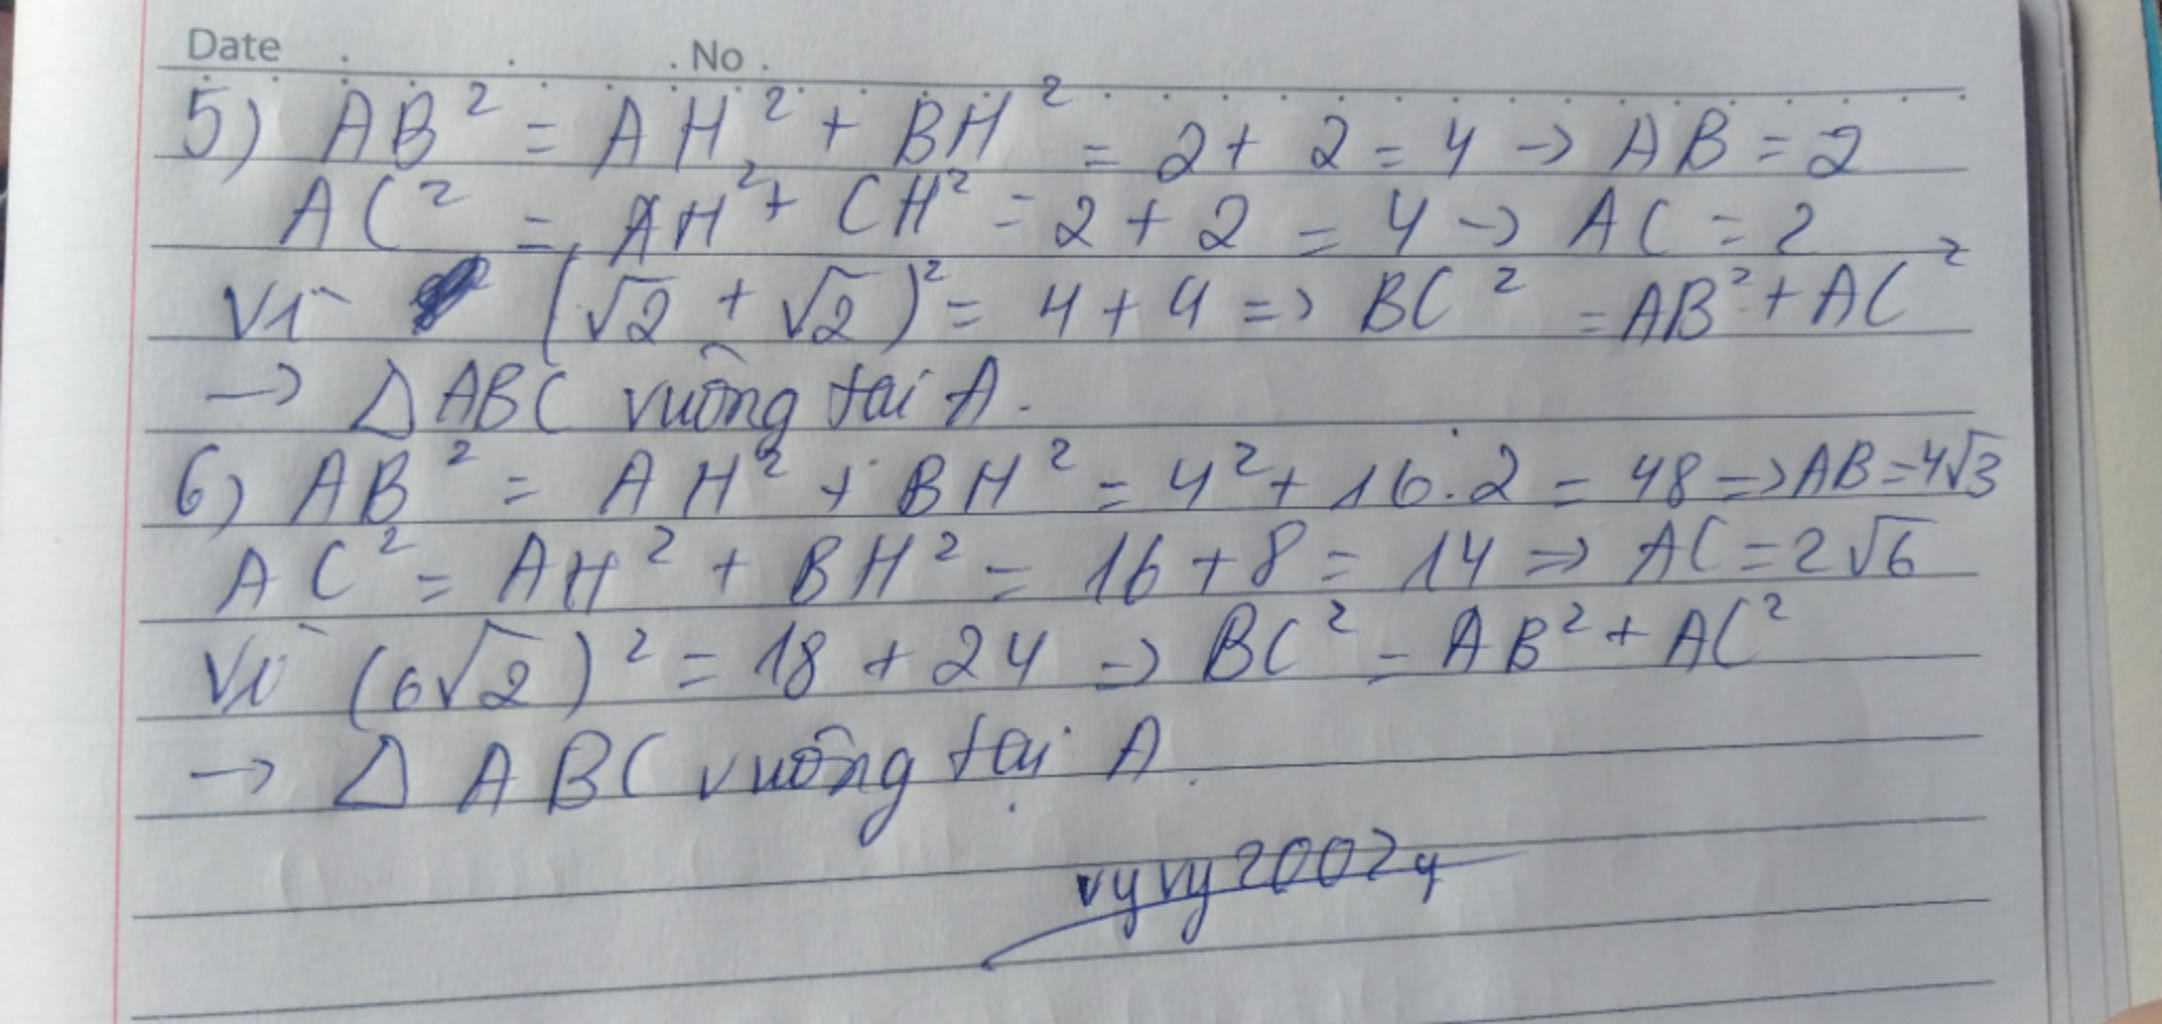 Date No
5) AB² = AH² + BH² = 2 + 2 = 4 → AB = 2
AC² = AH² + CH² = 2 + 2 = 4 → AC = 2
Vì (√2 + √2)² = 4 + 4 => BC² = AB² + AC²
→ Δ ABC vuông tại A.
6) AB² = AH² + BH² = 4² + 16.2 = 48 => AB = 4√3
AC² = AH² + BH² = 16 + 8 = 14 => AC = 2√6
Vì (6√2)² = 18 + 24 => BC² = AB² + AC²
→ Δ ABC vuông tại A.
vyvy2002y